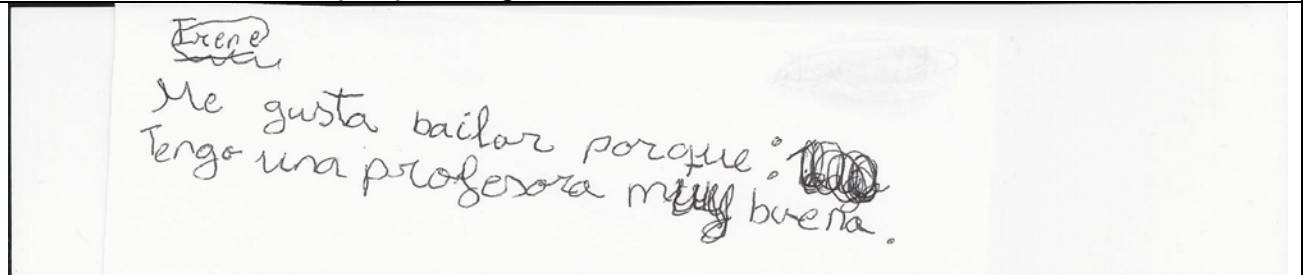 Irene
Me gusta bailar porque:
Tengo una profesora muy buena.